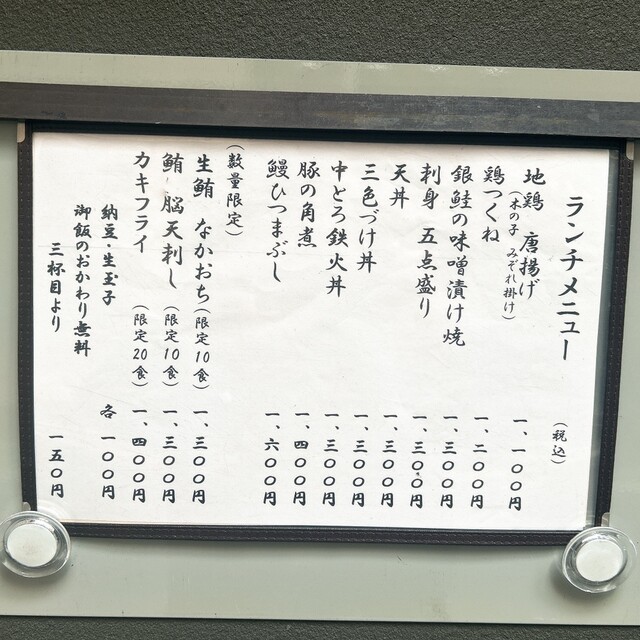 ランチメニュー (税込)
地鶏 唐揚げ 一、一〇〇円
(木の子 みぞれ掛け)
鶏つくね 一、二〇〇円
銀鮭の味噌漬け焼 一、三〇〇円
刺身 五点盛り 一、三〇〇円
天丼 一、三〇〇円
三色づけ丼 一、三〇〇円
中とろ鉄火丼 一、三〇〇円
豚の角煮 一、四〇〇円
鰻ひつまぶし 一、六〇〇円
(数量限定)
生鮪 なかおち(限定10食) 一、三〇〇円
鮪 脳天刺し (限定10食) 一、三〇〇円
カキフライ (限定20食) 一、四〇〇円
納豆・生玉子 各 一〇〇円
御飯のおかわり無料
三杯目より 一五〇円